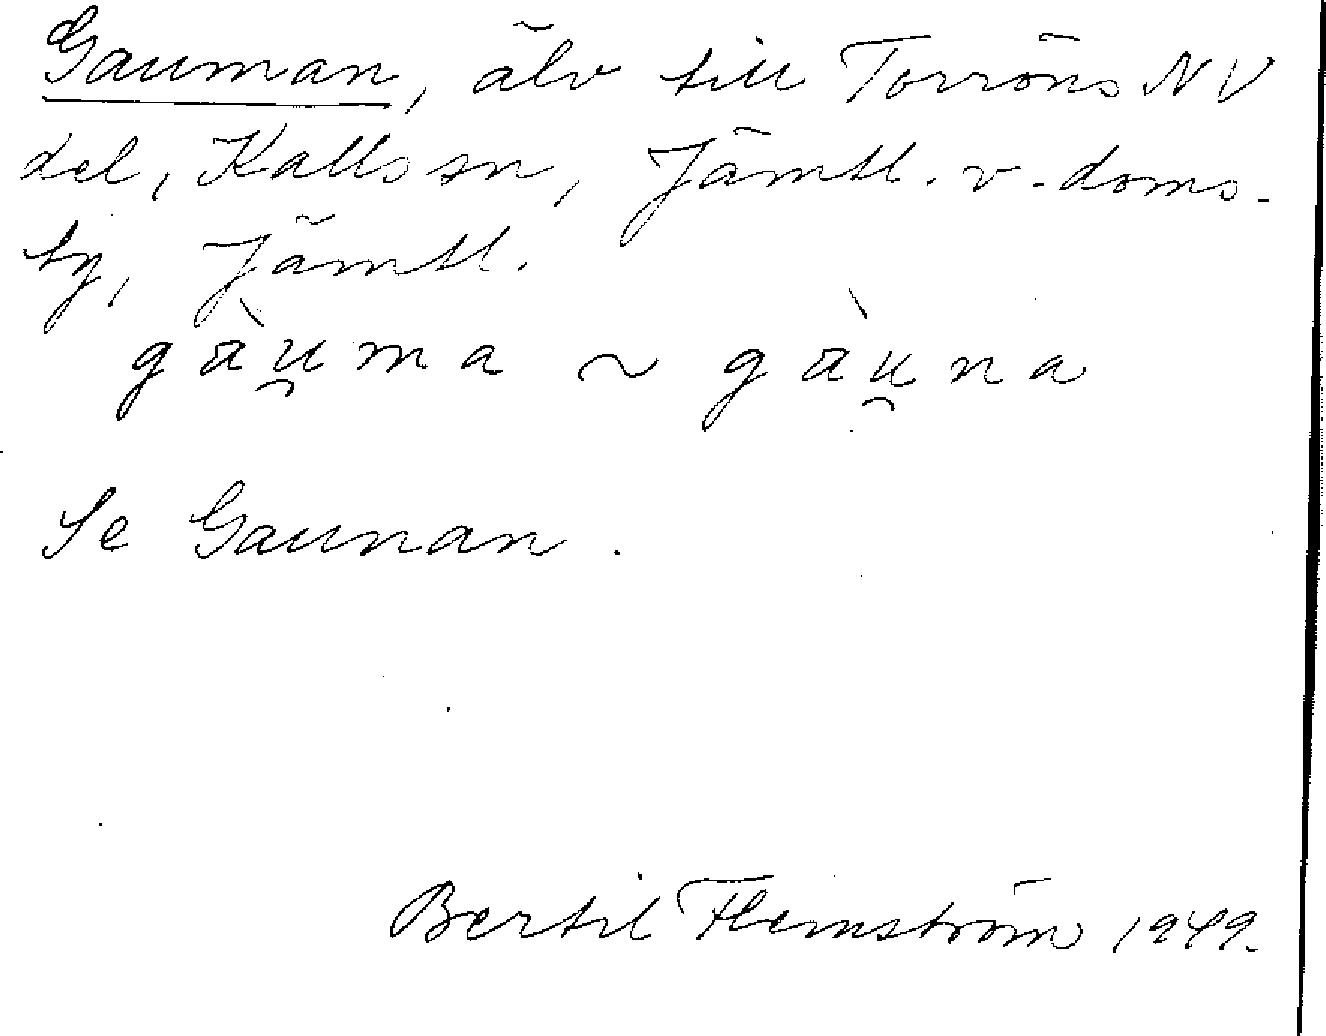 Gauman, älv till Torröns NV
del, Kalls sn, Jämtl. v. doms-
ty, Jämtl.
gàu̯ma ~ gàu̯na
Se Gaunan.
Bertil Flemström 1949.